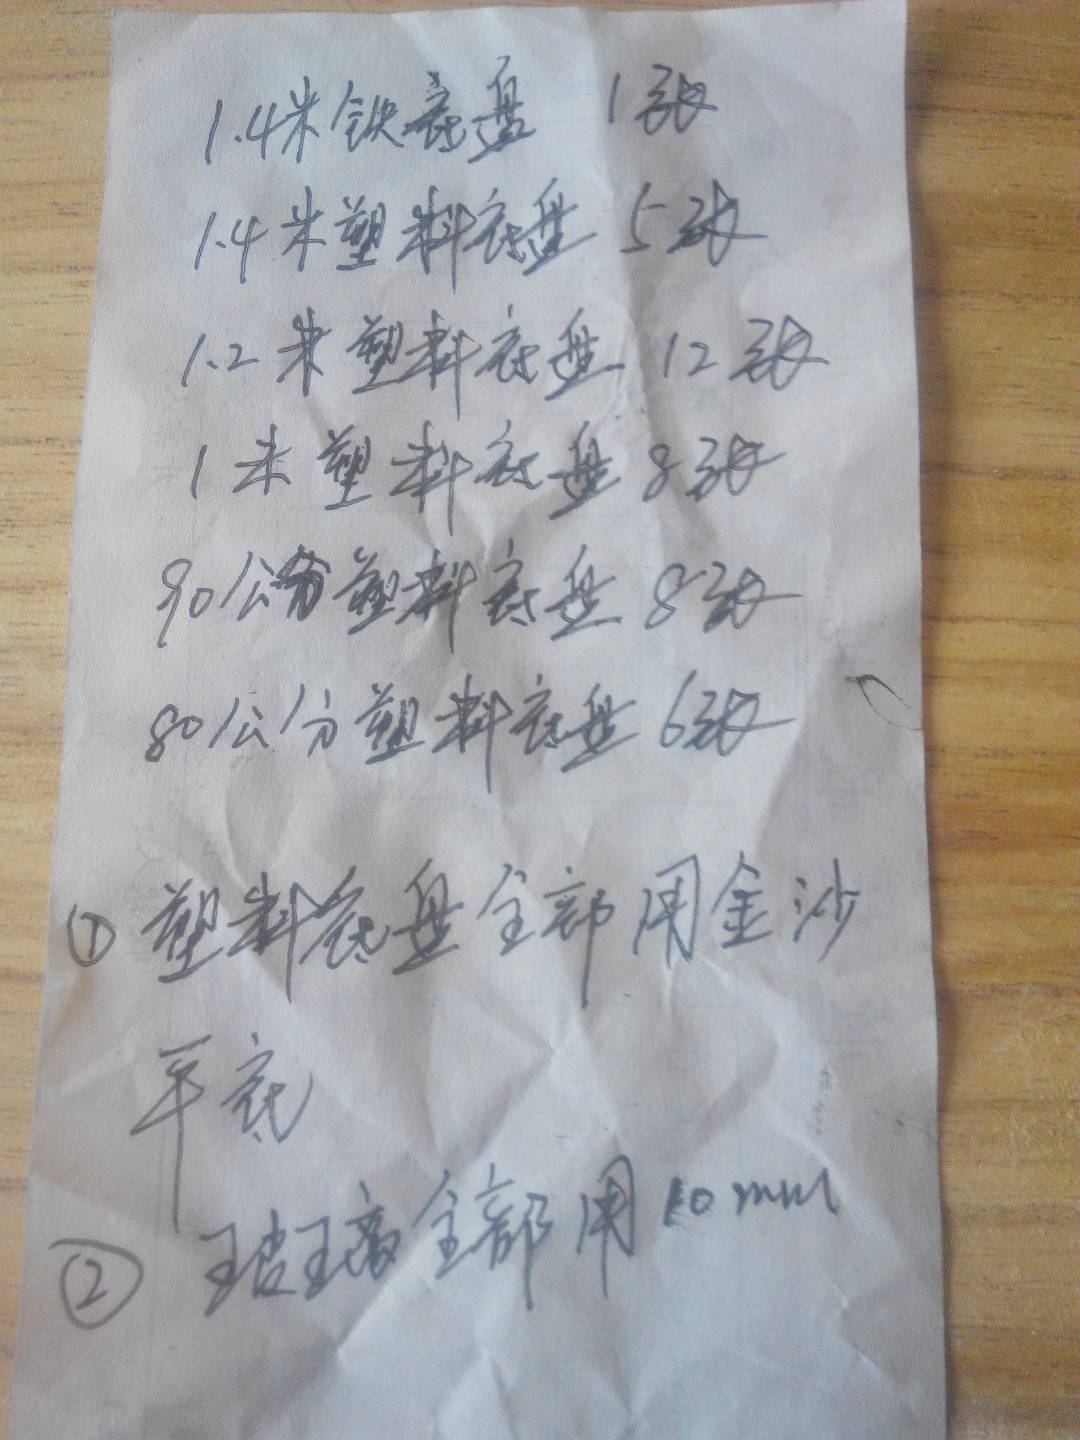 1.4米铁底盘 1张
1.4米塑料底盘 5张
1.2米塑料底盘 12张
1米塑料底盘 8张
90公分塑料底盘 8张
80公分塑料底盘 6张
① 塑料底盘全部用金沙
平底
② 玻璃全部用10mm